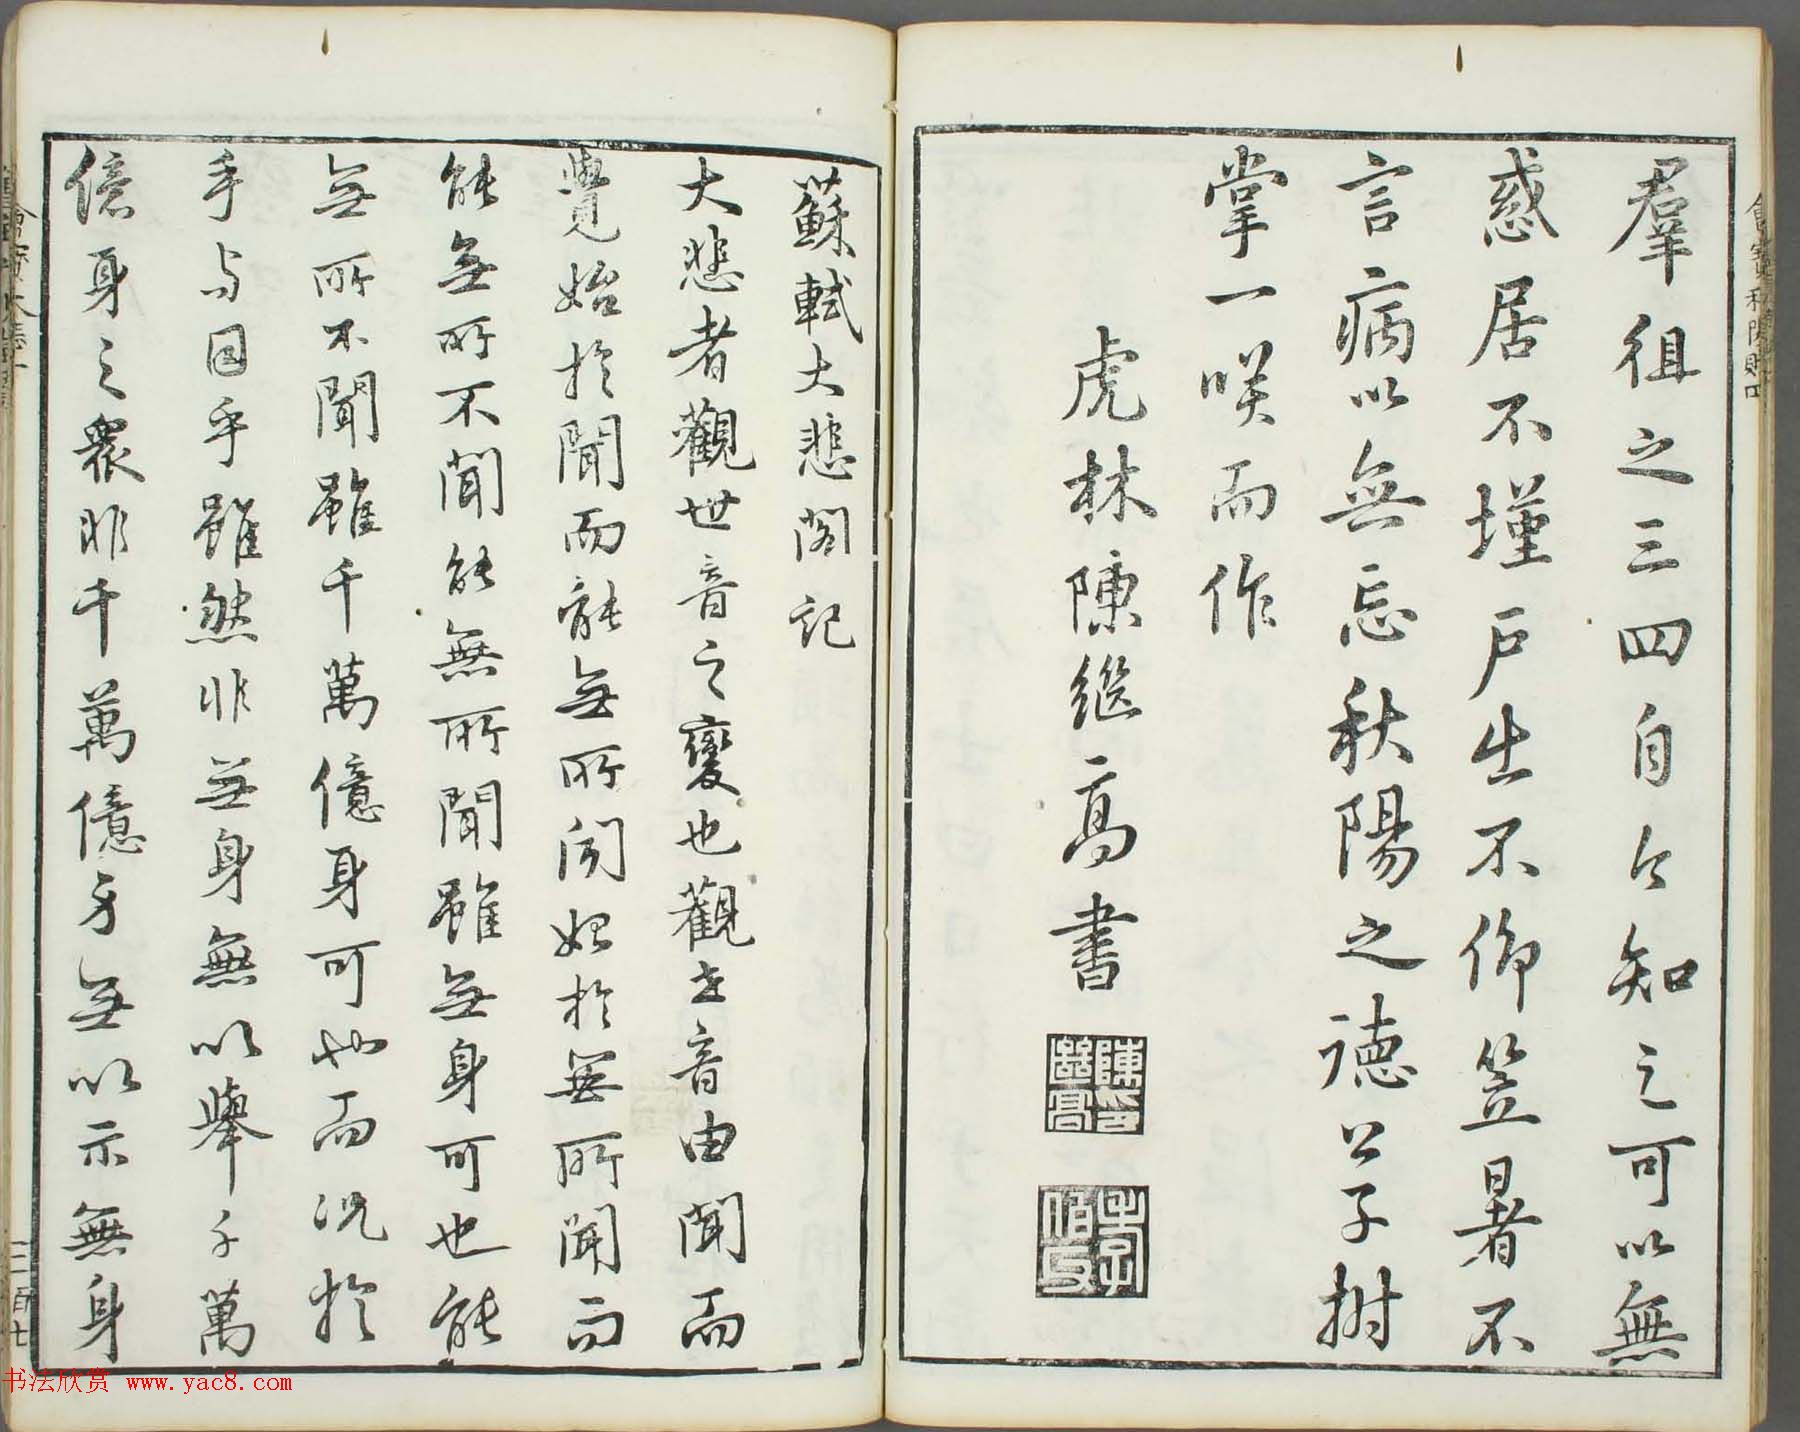 羣徂之三四自以知之可以無
惑居不墐戶出不仰笠暑不
言病以無忘秋陽之德公子拊
掌一咲而作
虎林陳繼高書
蘇軾大悲閣記
大悲者觀世音之變也觀世音由聞而
覺始於聞而能無所聞始於無所聞而
能無所不聞能無所聞雖無身可也能
無所不聞雖千萬億身可也而況於
手与目乎雖然非無身無以舉千萬
億身之衆非千萬億身無以示無身
二百七
书法欣赏 www.yac8.com